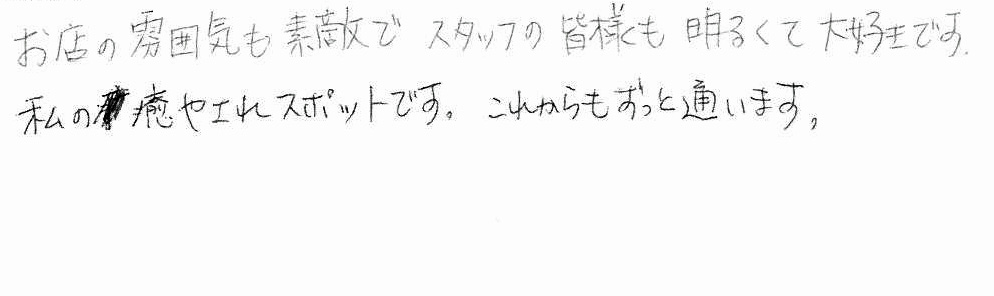 お店の雰囲気も素敵で スタッフの皆様も 明るくて大好きです。
私の癒やされスポットです。これからもずっと通います。